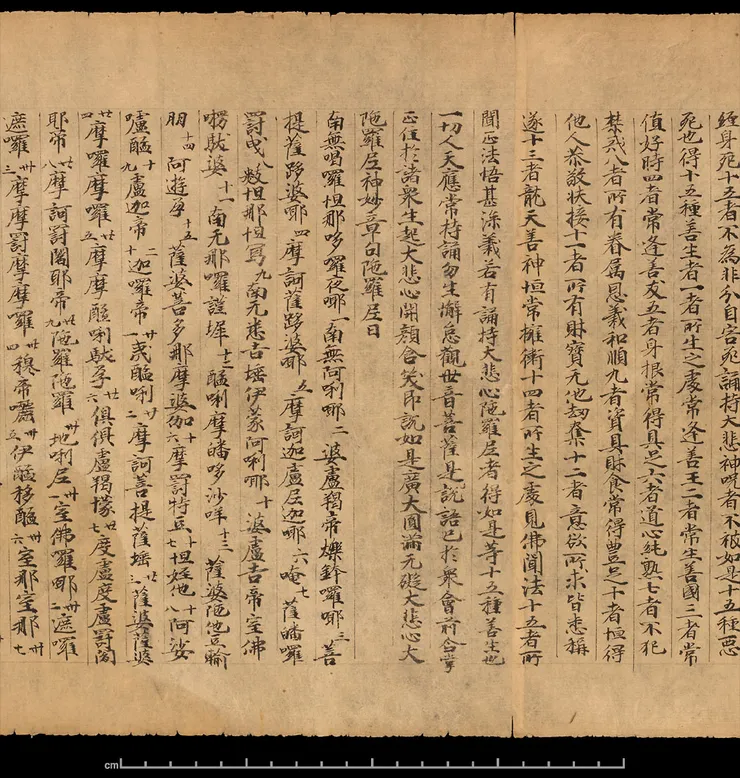 經身死十五者不為非分自害死誦持大悲神呪者不被如是十五種惡
死也得十五種善生者一者所生之處常逢善王二者常生善國三者常
值好時四者常逢善友五者身根常得具足六者道心純熟七者不犯
禁戒八者所有眷属恩義和順九者資具財食常得豊足十者恒得
他人恭敬扶接十一者所有財寶无他劫奪十二者意欲所求皆悉稱
遂十三者龍天善神恒常擁衛十四者所生之處見佛聞法十五者所
聞正法悟甚深義若有誦持大悲心陁羅尼者得如是等十五種善生也
一切人天應常持誦勿生懈怠觀世音菩薩是說語已於眾會前合掌
正住於諸衆生起大悲心開顔含笑即說如是廣大圓滿无礙大悲心大
陁羅尼神妙章句陁羅尼曰
南無喝囉怛那哆囉夜㖿一南無阿唎㖿二婆盧羯帝爍鉗囉㖿三菩
提薩跢婆㖿四摩訶薩跢婆㖿五摩訶迦盧尼迦㖿六唵七薩皤囉
罰曳八數怛那怛寫九南无悉吉㗛伊蒙阿唎㖿十婆盧吉帝室佛
楞馱婆十一南无那囉謹墀十二醯唎摩皤哆沙咩十三薩婆陁他豆輸
朋十四阿遊孕十五薩婆菩多那摩婆伽十六摩罰特豆十七怛姪他十八阿娑
嚧醯十九盧迦帝二十迦囉帝廿一夷醯唎廿二摩訶菩提薩埵廿三薩婆薩婆
廿四摩囉摩囉廿五摩摩醯唎馱孕廿六俱俱盧羯懞廿七度盧度盧罰闍
耶帝廿八摩訶罰闍耶帝廿九陁羅陁羅卅地利尼卅一室佛囉㖿卅二遮囉
遮囉卅三摩摩罰摩摩囉卅四穆帝㘑卅五伊醯移醯卅六室那室那卅七